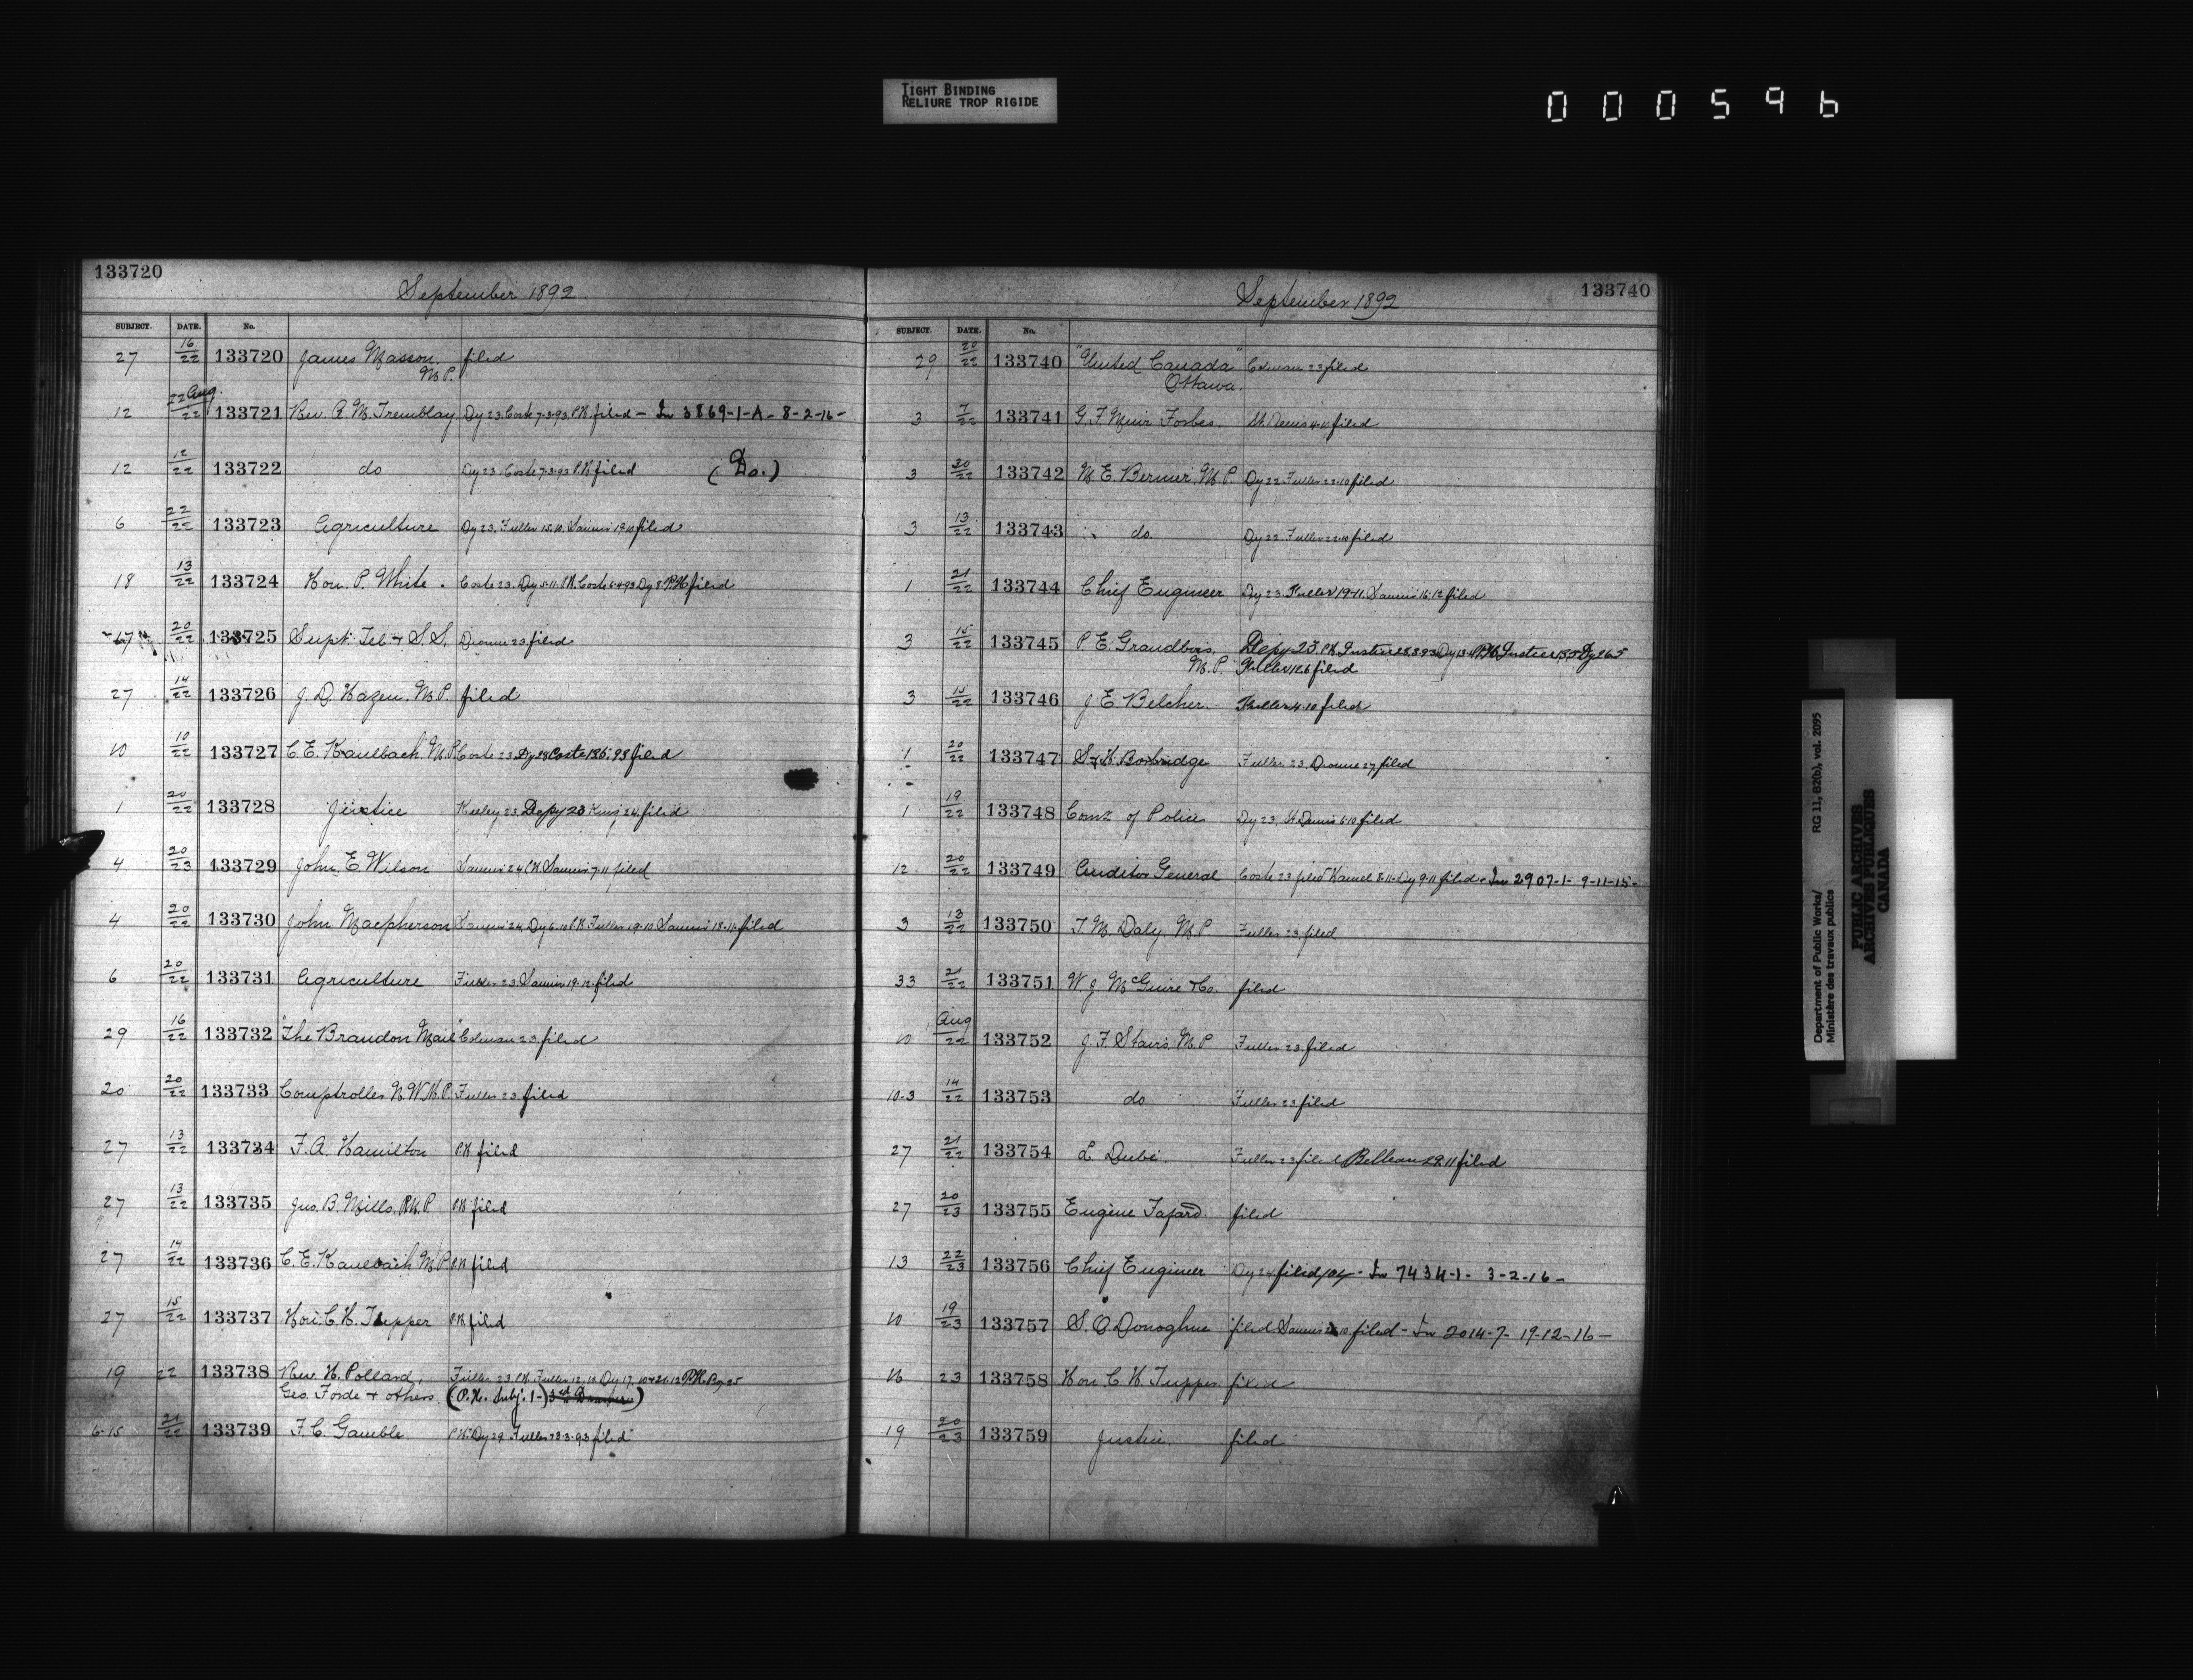 TIGHT BINDING
RELIURE TROP RIGIDE
0 0 0 5 9 6
133720
September 1892
SUBJECT. DATE. No.
27 16/22 133720 James Masson, filed
M.P.
12 22 Aug./22 133721 Rev. A. M. Tremblay Dy 23. Coste 7-3-93. P.K. filed - In 3869-1-A - 8-2-16 -
12 12/22 133722 do Dy 23. Coste 7-3-93 P.K. filed (Do.)
6 22/22 133723 Agriculture Dy 23. Fuller filed
18 13/22 133724 Hon. P. White. Coste 23. filed
20/22 133725 Supt. Tel + S. S. Dionne 23 filed
27 14/22 133726 J. D. Hazen. M.P. filed
10 10/22 133727 C. E. Kaulbach. M.P. Coste 23 filed
1 20/22 133728 Justice Keeley 23. Depy 23 King 24. filed
4 20/23 133729 John. E. Wilson filed
4 20/22 133730 John Macpherson filed
6 20/22 133731 Agriculture Fuller 23 filed
29 16/22 133732 "The Brandon Mail" Colman 23. filed
20 20/22 133733 Comptroller N.W.M.P. Fuller 23 filed
27 13/22 133734 F. A. Hamilton P.K. filed
27 13/22 133735 Jno. B. Mills, M.P. P.K. filed
27 14/22 133736 C. E. Kaulbach M.P. P.K. filed
27 15/22 133737 Hon. C. H. Tupper P.K. filed
19 22 133738 Rev. H. Pollard, Fuller 23. P.K. Fuller
Geo. Forde + others. (P.K. Subj. 1-)
6-15 21/22 133739 F. C. Gamble. P.K. Dy 29. Fuller 28-3-93 filed
133740
September 1892
SUBJECT. DATE. No.
29 20/22 133740 "United Canada" Colman 23 filed
Ottawa.
3 7/22 133741 G. F. Muir Forbes. filed
3 20/22 133742 M. E. Bernier. M.P. Dy 22. Fuller 22-10 filed
3 13/22 133743 do. Dy 22. Fuller 22-10 filed
1 21/22 133744 Chief Engineer Dy 23. Fuller 19-11. filed
3 15/22 133745 P. E. Grandbois, Depy 23. P.K. Justice
M.P. Fuller filed
3 15/22 133746 J. E. Belcher. Fuller 4-10 filed
1 20/22 133747 S & H. Borbridge Fuller 23. Dionne 27 filed
1 19/22 133748 Comr of Police Dy 23. filed
12 20/22 133749 Auditor General Coste 23 filed Hamel 8-11. Dy 9-11 filed - In 2907-1- 9-11-15-
3 13/22 133750 T. M. Daly. M.P. Fuller 23. filed
33 21/22 133751 W. J. McGuire & Co. filed
10 Aug/22 133752 J. F. Stairs. M.P. Fuller 23. filed
10-3 14/22 133753 do Fuller 23 filed
27 21/22 133754 L. Dubé Fuller 23 filed Belleau 29-11 filed
27 20/23 133755 Eugène Fafard. filed
13 22/23 133756 Chief Engineer Dy 24 filed - In 7434-1- 3-2-16-
10 19/23 133757 S. O'Donoghue filed filed - In 2014-7- 19-12-16-
16 23 133758 Hon. C. H. Tupper filed
19 20/23 133759 Justice. filed
Department of Public Works/
Ministère des travaux publics
RG 11, B2(b), vol. 2095
PUBLIC ARCHIVES
ARCHIVES PUBLIQUES
CANADA